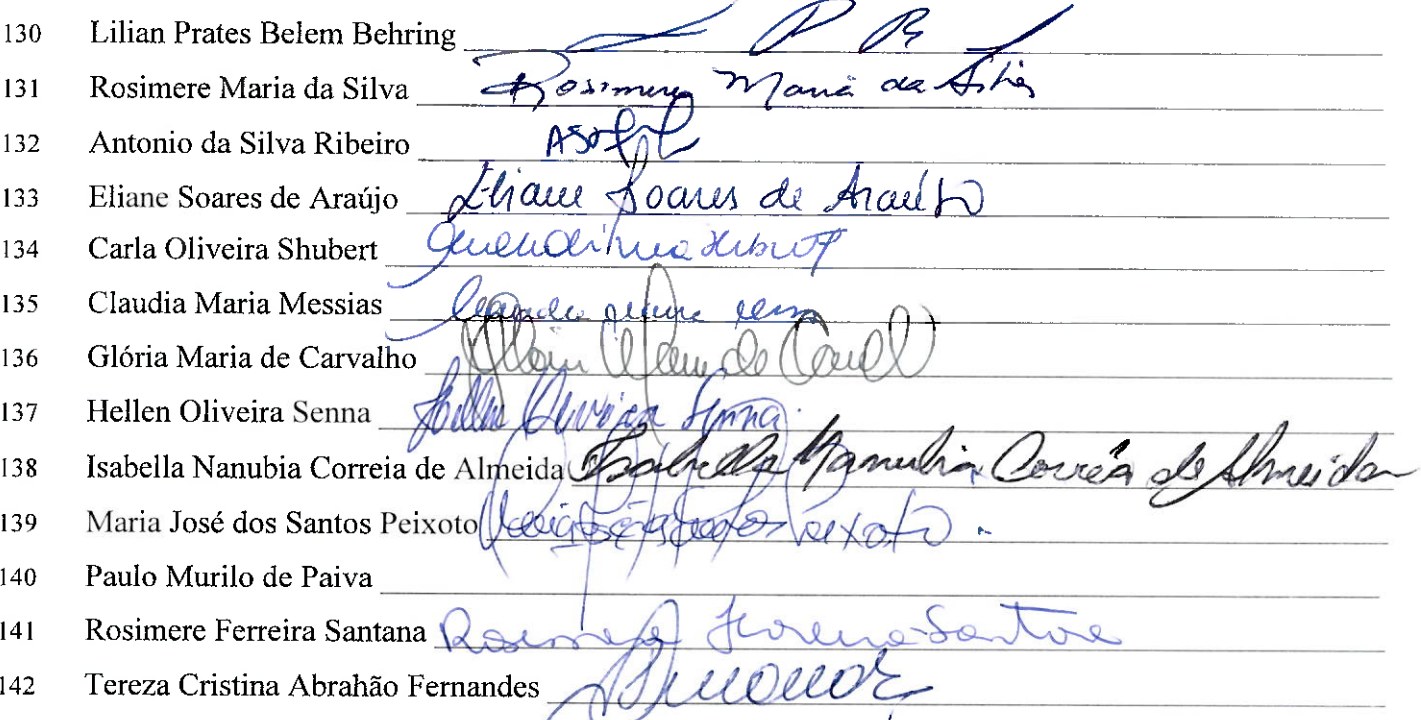 130 Lilian Prates Belem Behring L P B
131 Rosimere Maria da Silva Rosimere Maria da Silva
132 Antonio da Silva Ribeiro
133 Eliane Soares de Araújo Eliane Soares de Araújo
134 Carla Oliveira Shubert
135 Claudia Maria Messias
136 Glória Maria de Carvalho
137 Hellen Oliveira Senna Hellen Oliveira Senna
138 Isabella Nanubia Correia de Almeida Isabella Nanubia Corrêa de Almeida
139 Maria José dos Santos Peixoto Maria José dos Santos Peixoto
140 Paulo Murilo de Paiva
141 Rosimere Ferreira Santana
142 Tereza Cristina Abrahão Fernandes